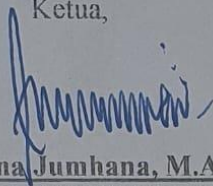 Ketua,
na Jumhana, M.A